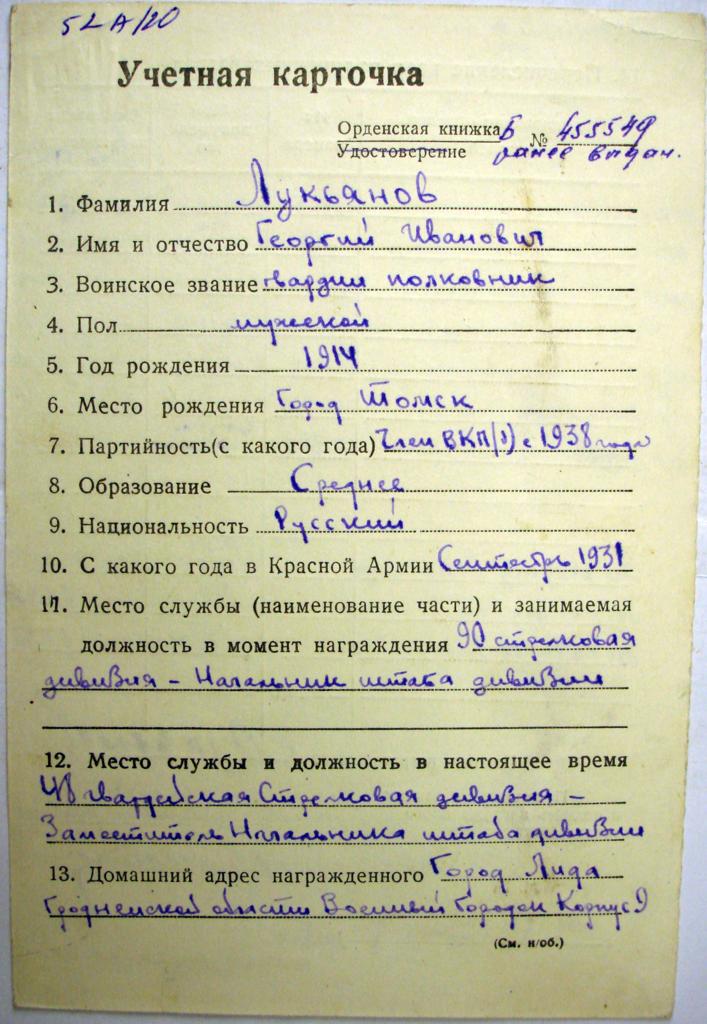 52А/20
Учетная карточка
Орденская книжка Б № 455549
Удостоверение ранее выдан.
1. Фамилия Лукьянов
2. Имя и отчество Георгий Иванович
3. Воинское звание гвардии полковник
4. Пол мужской
5. Год рождения 1914
6. Место рождения Город Томск
7. Партийность(с какого года) Член ВКП(б) с 1938 года
8. Образование Среднее
9. Национальность Русский
10. С какого года в Красной Армии Сентябрь 1931
11. Место службы (наименование части) и занимаемая
должность в момент награждения 90 стрелковая
дивизия – Начальник штаба дивизии
12. Место службы и должность в настоящее время
48 гвардейская Стрелковая дивизия –
Заместитель Начальника штаба дивизии
13. Домашний адрес награжденного Город Лида
Гродненской области Военный Городок Корпус 9
(См. н/об.)